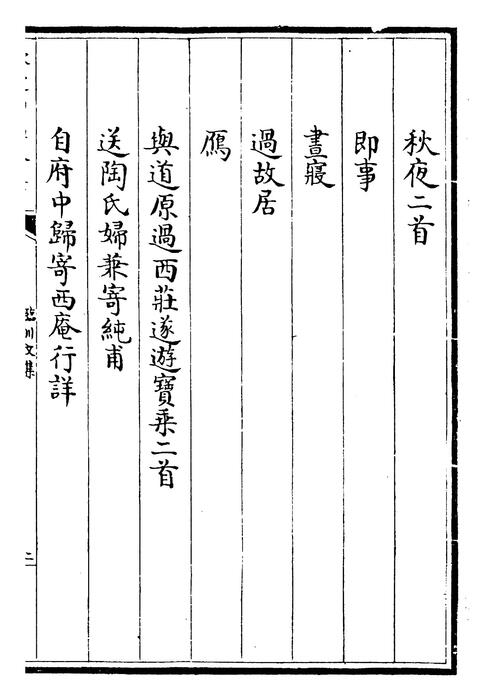 秋夜二首
即事
晝寢
過故居
鴈
與道原過西莊遂遊寶乗二首
送陶氏婦兼寄純甫
自府中歸寄西庵行詳
臨川文集
二